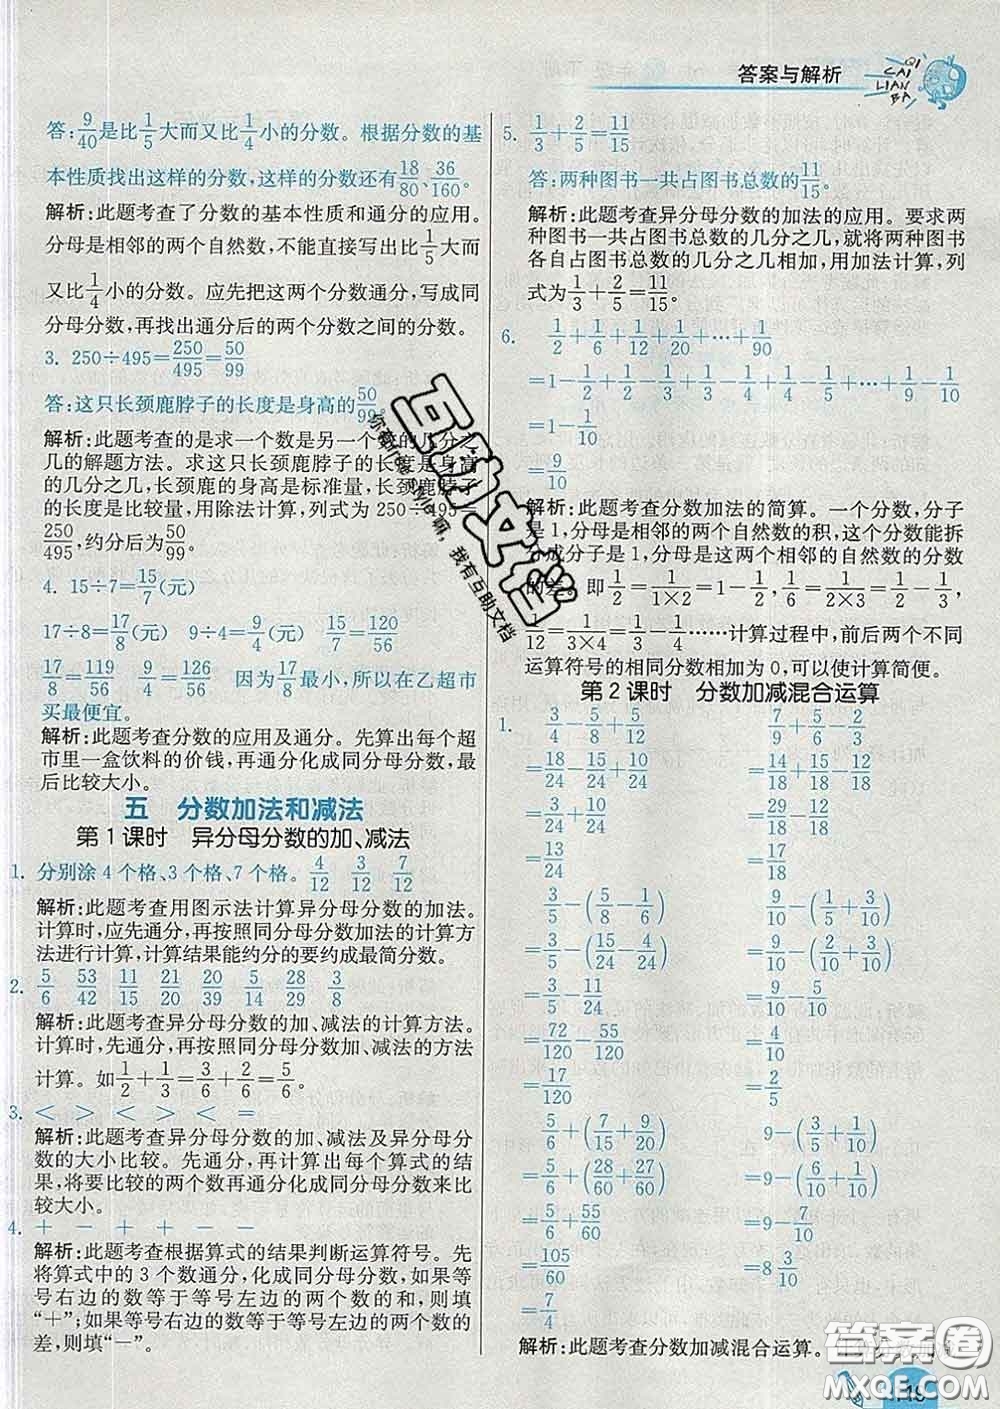 答案与解析
QI
CAI
LIAN
BA
答:9/40是比1/5大而又比1/4小的分数。根据分数的基
本性质找出这样的分数,这样的分数还有18/80、36/160。
解析:此题考查了分数的基本性质和通分的应用。
分母是相邻的两个自然数,不能直接写出比1/5大而
又比1/4小的分数。应先把这两个分数通分,写成同
分母分数,再找出通分后的两个分数之间的分数。
3. 250÷495=250/495=50/99
答:这只长颈鹿脖子的长度是身高的50/99。
解析:此题考查的是求一个数是另一个数的几分之
几的解题方法。求这只长颈鹿脖子的长度是身高
的几分之几,长颈鹿的身高是标准量,长颈鹿脖子
的长度是比较量,用除法计算,列式为 250÷495=
250/495,约分后为50/99。
4. 15÷7=15/7(元)
17÷8=17/8(元) 9÷4=9/4(元) 15/7=120/56
17/8=119/56 9/4=126/56 因为17/8最小,所以在乙超市
买最便宜。
解析:此题考查分数的应用及通分。先算出每个超
市里一盒饮料的价钱,再通分化成同分母分数,最
后比较大小。
五 分数加法和减法
第1课时 异分母分数的加、减法
1. 分别涂 4 个格、3 个格、7 个格。4/12 3/12 7/12
解析:此题考查用图示法计算异分母分数的加法。
计算时,应先通分,再按照同分母分数加法的计算方
法进行计算,计算结果能约分的要约成最简分数。
2. 5/6 53/42 11/15 21/20 20/39 5/14 28/45 3/8
解析:此题考查异分母分数的加、减法的计算方法。
计算时,先通分,再按照同分母分数加、减法的方法
计算。如1/2+1/3=3/6+2/6=5/6。
3. < > > < < =
解析:此题考查异分母分数的加、减法及异分母分
数的大小比较。先通分,再计算出每个算式的结
果,将要比较的两个数再通分化成同分母分数来比
较大小。
4. + − + + − −
解析:此题考查根据算式的结果判断运算符号。先
将算式中的 3 个数通分,化成同分母分数,如果等
号右边的数等于等号左边的两个数的和,则填
“+”;如果等号右边的数等于等号左边两个数的
差,则填“−”。
5. 1/3+2/5=11/15
答:两种图书一共占图书总数的11/15。
解析:此题考查异分母分数的加法的应用。要求两
种图书一共占图书总数的几分之几,就将两种图书
各自占图书总数的几分之几相加,用加法计算,列
式为1/3+2/5=11/15。
6. 1/2+1/6+1/12+1/20+⋯+1/90
=1−1/2+1/2−1/3+1/3−1/4+1/4−1/5+⋯+1/9−1/10
=1−1/10
=9/10
解析:此题考查分数加法的简算。一个分数,分子
是 1,分母是相邻的两个自然数的积,这个分数能拆
分成分子是 1,分母是这两个相邻的自然数的分数
的差。即1/2=1/1×2=1−1/2,1/6=1/2×3=1/2−1/3,
1/12=1/3×4=1/3−1/4……计算过程中,前后两个不同
运算符号的相同分数相加为 0,可以使计算简便。
第2课时 分数加减混合运算
1. 3/4−5/8+5/12 7/9+5/6−2/3
=18/24−15/24+10/24 =14/18+15/18−12/18
=3/24+10/24 =29/18−12/18
=13/24 =17/18
3/5−(5/8−1/6) 9/10−(1/5+3/10)
=3/5−(15/24−4/24) =9/10−(2/10+3/10)
=3/5−11/24 =9/10−5/10
=72/120−55/120 =4/10
=17/120 =2/5
5/6+(7/15+9/20) 9−(3/5+1/10)
=5/6+(28/60+27/60) =9−(6/10+1/10)
=5/6+55/60 =9−7/10
=105/60 =8 3/10
=7/4
解析:此题考查分数加减混合运算。
互助文档
你有help style嘛,我有互助文档
答案圈
MXQE.COM